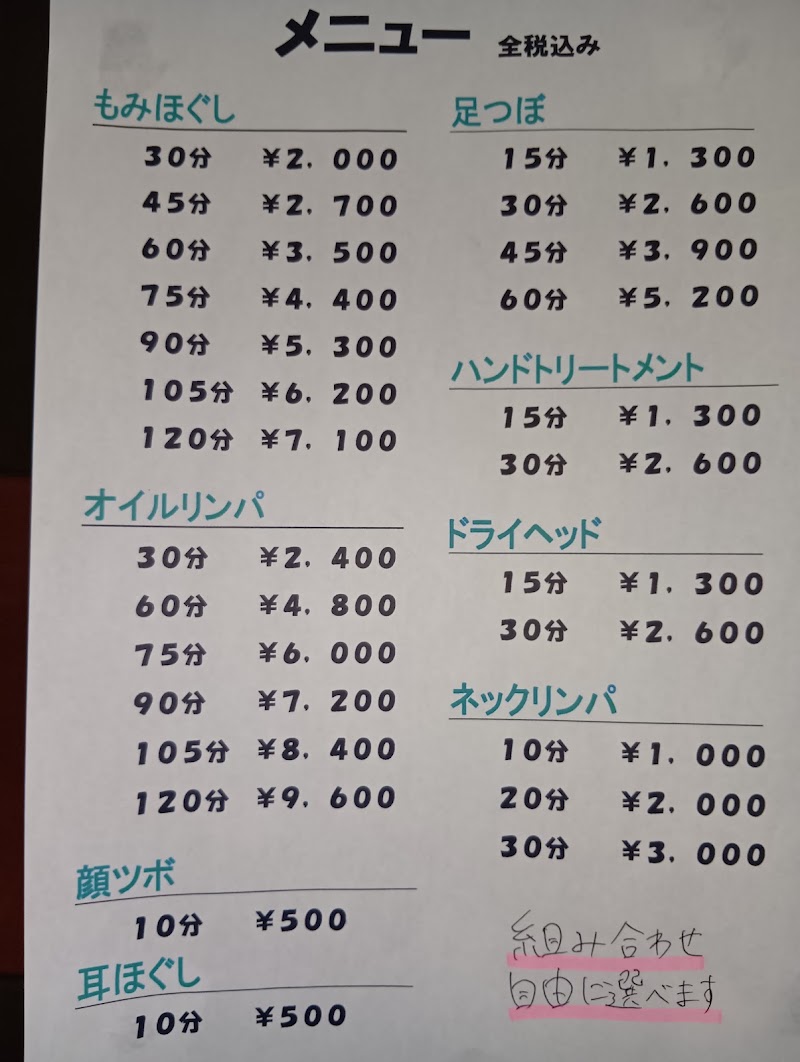 メニュー 全税込み
もみほぐし
30分 ¥2，000
45分 ¥2，700
60分 ¥3，500
75分 ¥4，400
90分 ¥5，300
105分 ¥6，200
120分 ¥7，100
オイルリンパ
30分 ¥2，400
60分 ¥4，800
75分 ¥6，000
90分 ¥7，200
105分 ¥8，400
120分 ¥9，600
顔ツボ
10分 ¥500
耳ほぐし
10分 ¥500
足つぼ
15分 ¥1，300
30分 ¥2，600
45分 ¥3，900
60分 ¥5，200
ハンドトリートメント
15分 ¥1，300
30分 ¥2，600
ドライヘッド
15分 ¥1，300
30分 ¥2，600
ネックリンパ
10分 ¥1，000
20分 ¥2，000
30分 ¥3，000
組み合わせ
自由に選べます